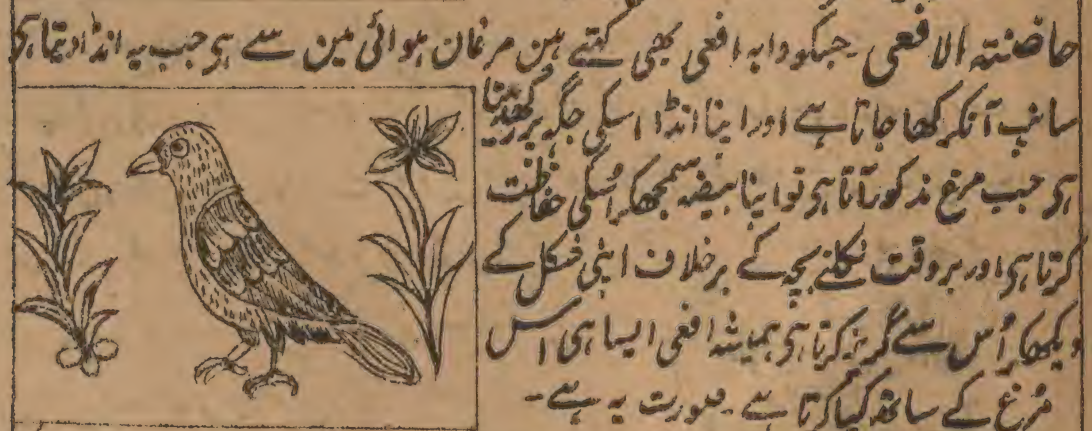 حاضنتہ الافعی ۔ جسکو دابہ افعی بھی کہتے ہین مرغان ہوائی مین سے ہی جب یہ انڈا دیتا ہی
سانپ آنکر کھا جاتا ہے اور اپنا انڈا اسکی جگہ پر رکھدیتا
ہی جب مرغ مذکور آتا ہی تو اپنا بیضہ سمجھکر اُسکی حفاظت
کرتا ہی اور بروقت نکلنے بچہ کے برخلاف اپنی شکل کے
دیکھکر اُس سے گریز کرتا ہی ہمیشہ افعی ایسا ہی اس
مرغ کے ساتھ کیا کرتا ہے ۔ صورت یہ ہے ۔